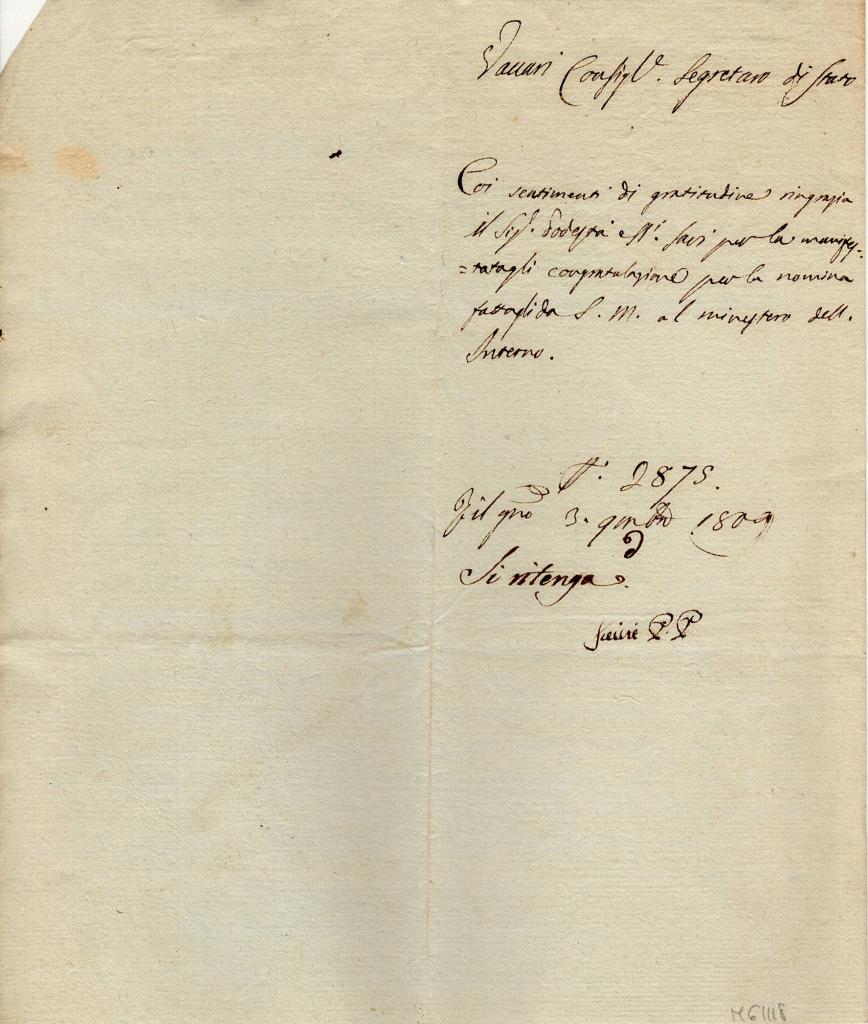 Vaccari Consigl.e Segretaro di Stato
Coi sentimenti di gratitudine ringrazia
il Sig.r Podestà e SS.i Savi per la manifes-
=tatagli congratulazione per la nomina
fattagli da S. M. al ministero dell.
Interno.
N.° 2875.
il gno 3. 9mbre 1809
Si ritenga
P. P.
M 6118